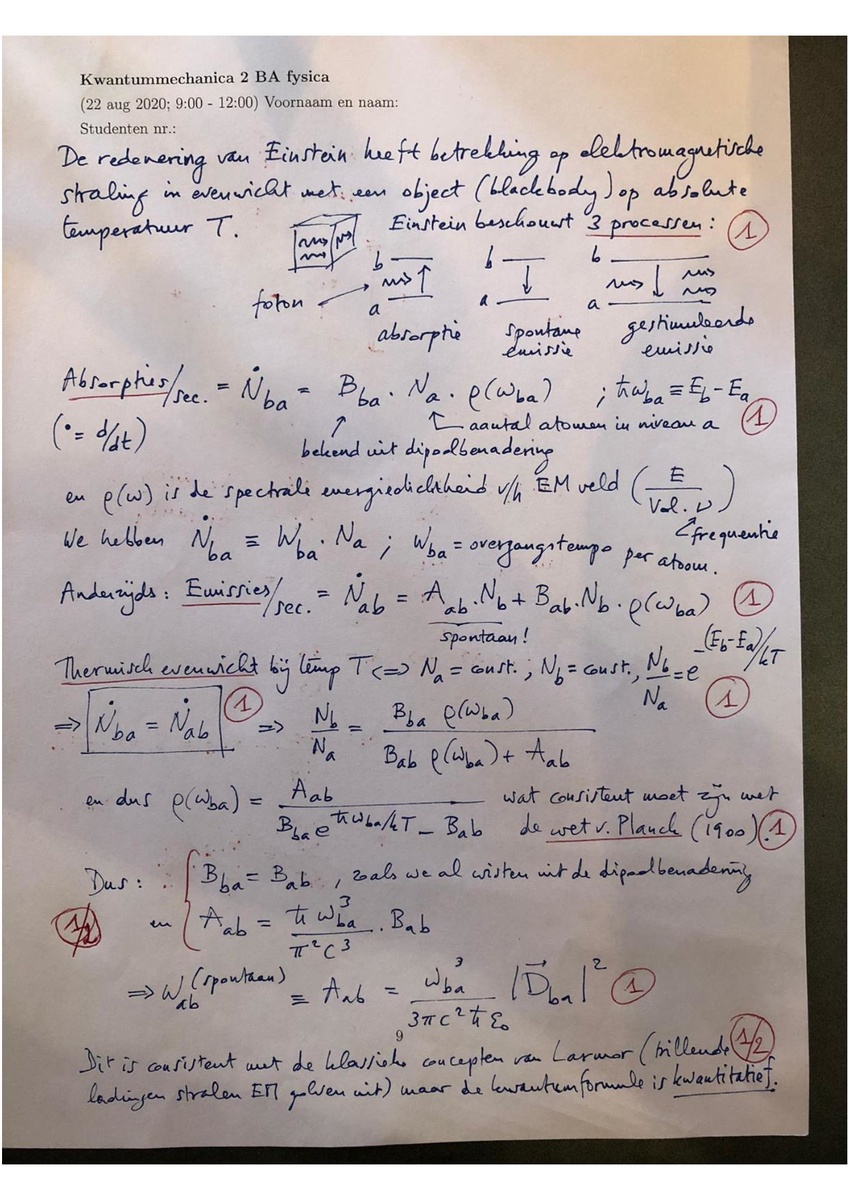 Kwantummechanica 2 BA fysica
(22 aug 2020; 9:00 - 12:00) Voornaam en naam:
Studenten nr.:
De redenering van Einstein heeft betrekking op elektromagnetische
straling in evenwicht met een object (blackbody) op absolute
temperatuur T. Einstein beschouwt 3 processen: 1
b b b
foton a a a
absorptie spontane emissie gestimuleerde emissie
Absorpties/sec. = Ṅ_ba = B_ba · N_a · ρ(ω_ba) ; ħω_ba ≡ E_b - E_a 1
(˙ = d/dt) aantal atomen in niveau a
bekend uit dipoolbenadering
en ρ(ω) is de spectrale energiedichtheid v/h EM veld (E / Vol. ν)
frequentie
We hebben Ṅ_ba ≡ W_ba · N_a ; W_ba = overgangstempo per atoom.
Anderzijds: Emissies/sec. = Ṅ_ab = A_ab · N_b + B_ab · N_b · ρ(ω_ba) 1
spontaan!
Thermisch evenwicht bij temp T <=> N_a = const., N_b = const., N_b/N_a = e^{-(E_b-E_a)/kT} 1
=> Ṅ_ba = Ṅ_ab 1 => N_b/N_a = B_ba ρ(ω_ba) / (B_ab ρ(ω_ba) + A_ab)
en dus ρ(ω_ba) = A_ab / (B_ba e^{ħω_ba/kT} - B_ab) wat consistent moet zijn met
de wet v. Planck (1900). 1
Dus: B_ba = B_ab, zoals we al wisten uit de dipoolbenadering
1/2 en A_ab = ħω_ba^3 / (π^2 c^3) . B_ab
=> W_ab^(spontaan) ≡ A_ab = ω_ba^3 / (3πc^2 ħ ε_0) |D⃗_ba|^2 1
9
Dit is consistent met de klassieke concepten van Larmor (trillende 1/2
ladingen stralen EM golven uit) maar de kwantumformule is kwantitatief.